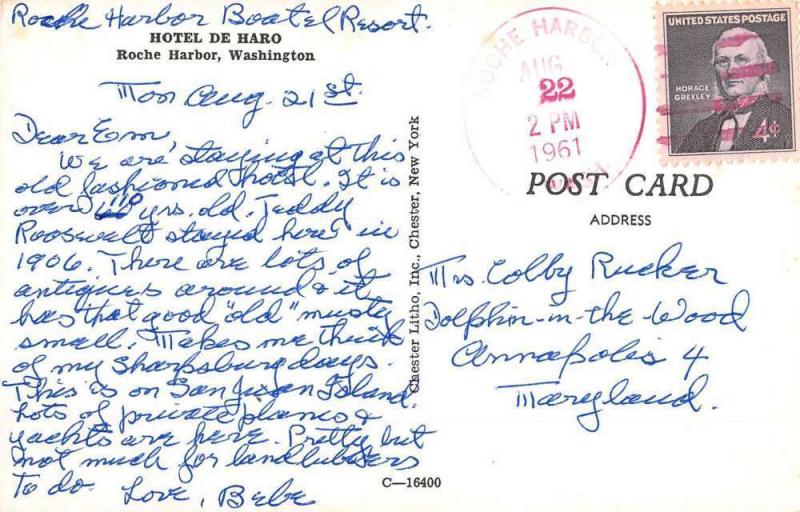 Roche Harbor Boatel Resort.
HOTEL DE HARO
Roche Harbor, Washington
Mon Aug. 21st.
Dear Em,
We are staying at this
old fashioned hotel. It is
over yrs. old. Teddy
Roosevelt stayed here in
1906. There are lots of
antiques around & it
has that good "old" musty
smell. Makes me think
of my Sharpsburg days.
This is on San Juan Island.
Lots of private planes &
yachts are here. Pretty but
not much for landlubbers
to do. Love, Bebe
Chester Litho, Inc., Chester, New York
C—16400
ROCHE HARBOR
AUG
22
2 PM
1961
WASH.
UNITED STATES POSTAGE
HORACE
GREELEY
4¢
POST CARD
ADDRESS
Mrs. Colby Rucker
Dolphin-in-the-Wood
Annapolis 4
Maryland.